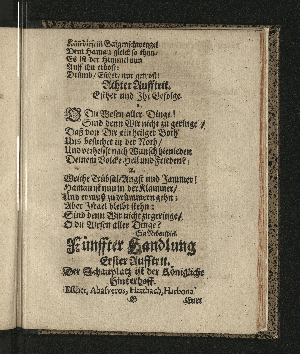 Kan dieser Galgenschwengel
Dem Haman gleich so thun.
Es ist der Himmel nun
Auff ihn erbost:
Drumb / Esther, nur getrost!
Achter Aufftrit.
Esther und Ihr Gefolge.
O Du Wesen aller Dinge!
Sind denn Wir nicht zu geringe /
Daß von Dir ein heilger Both
Uns besuchet in der Noth /
Und verheisst nach Wunsch hienieden
Deinem Volcke Heil und Frieden?
2.
Welche Trübsal / Angst und Jammer!
Haman ist nun in der Klammer /
Und er muß zu trümmern gehn:
Aber Israel bleibt stehn:
Sind denn Wir nicht zu geringe /
O du Wesen aller Dinge?
Fünffter Handlung
Erster Aufftrit.
Der Schauplatz ist der Königliche
Hinterhoff.
Esther, Ahasverus, Hathach, Harbona
G